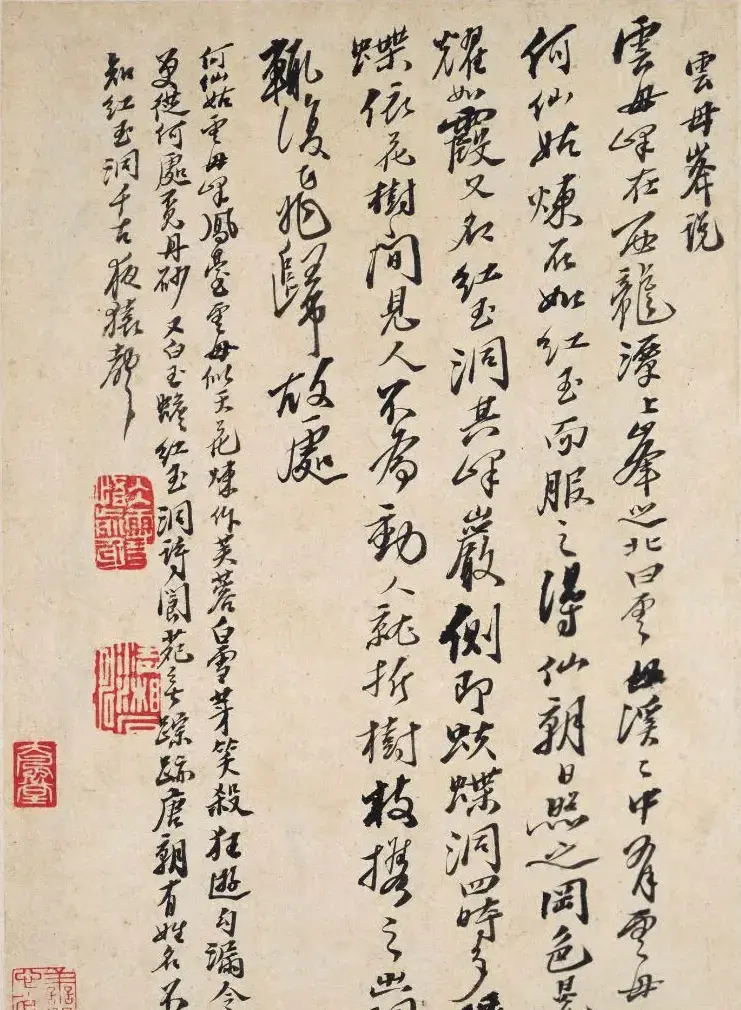 雲母峯說
雲母峰在西龍潭上峯之北曰雲母溪〻中有雲母
何仙姑煉石如紅玉而服之得仙朝日照之岡色晃
耀如霞又名紅玉洞其峰巖側即蛺蝶洞四時多
蝶依花樹間見人不為動人就折樹枝攜之出洞
輒復飛歸故處
何仙姑雲母峰鳳臺雲母似天花煉作芙蓉白雪芽笑殺狂遊勾漏令
更從何處覓丹砂 又白玉蟾紅玉洞詩閬苑無踪跡唐朝有姓名不
知紅玉洞千古夜猿聲